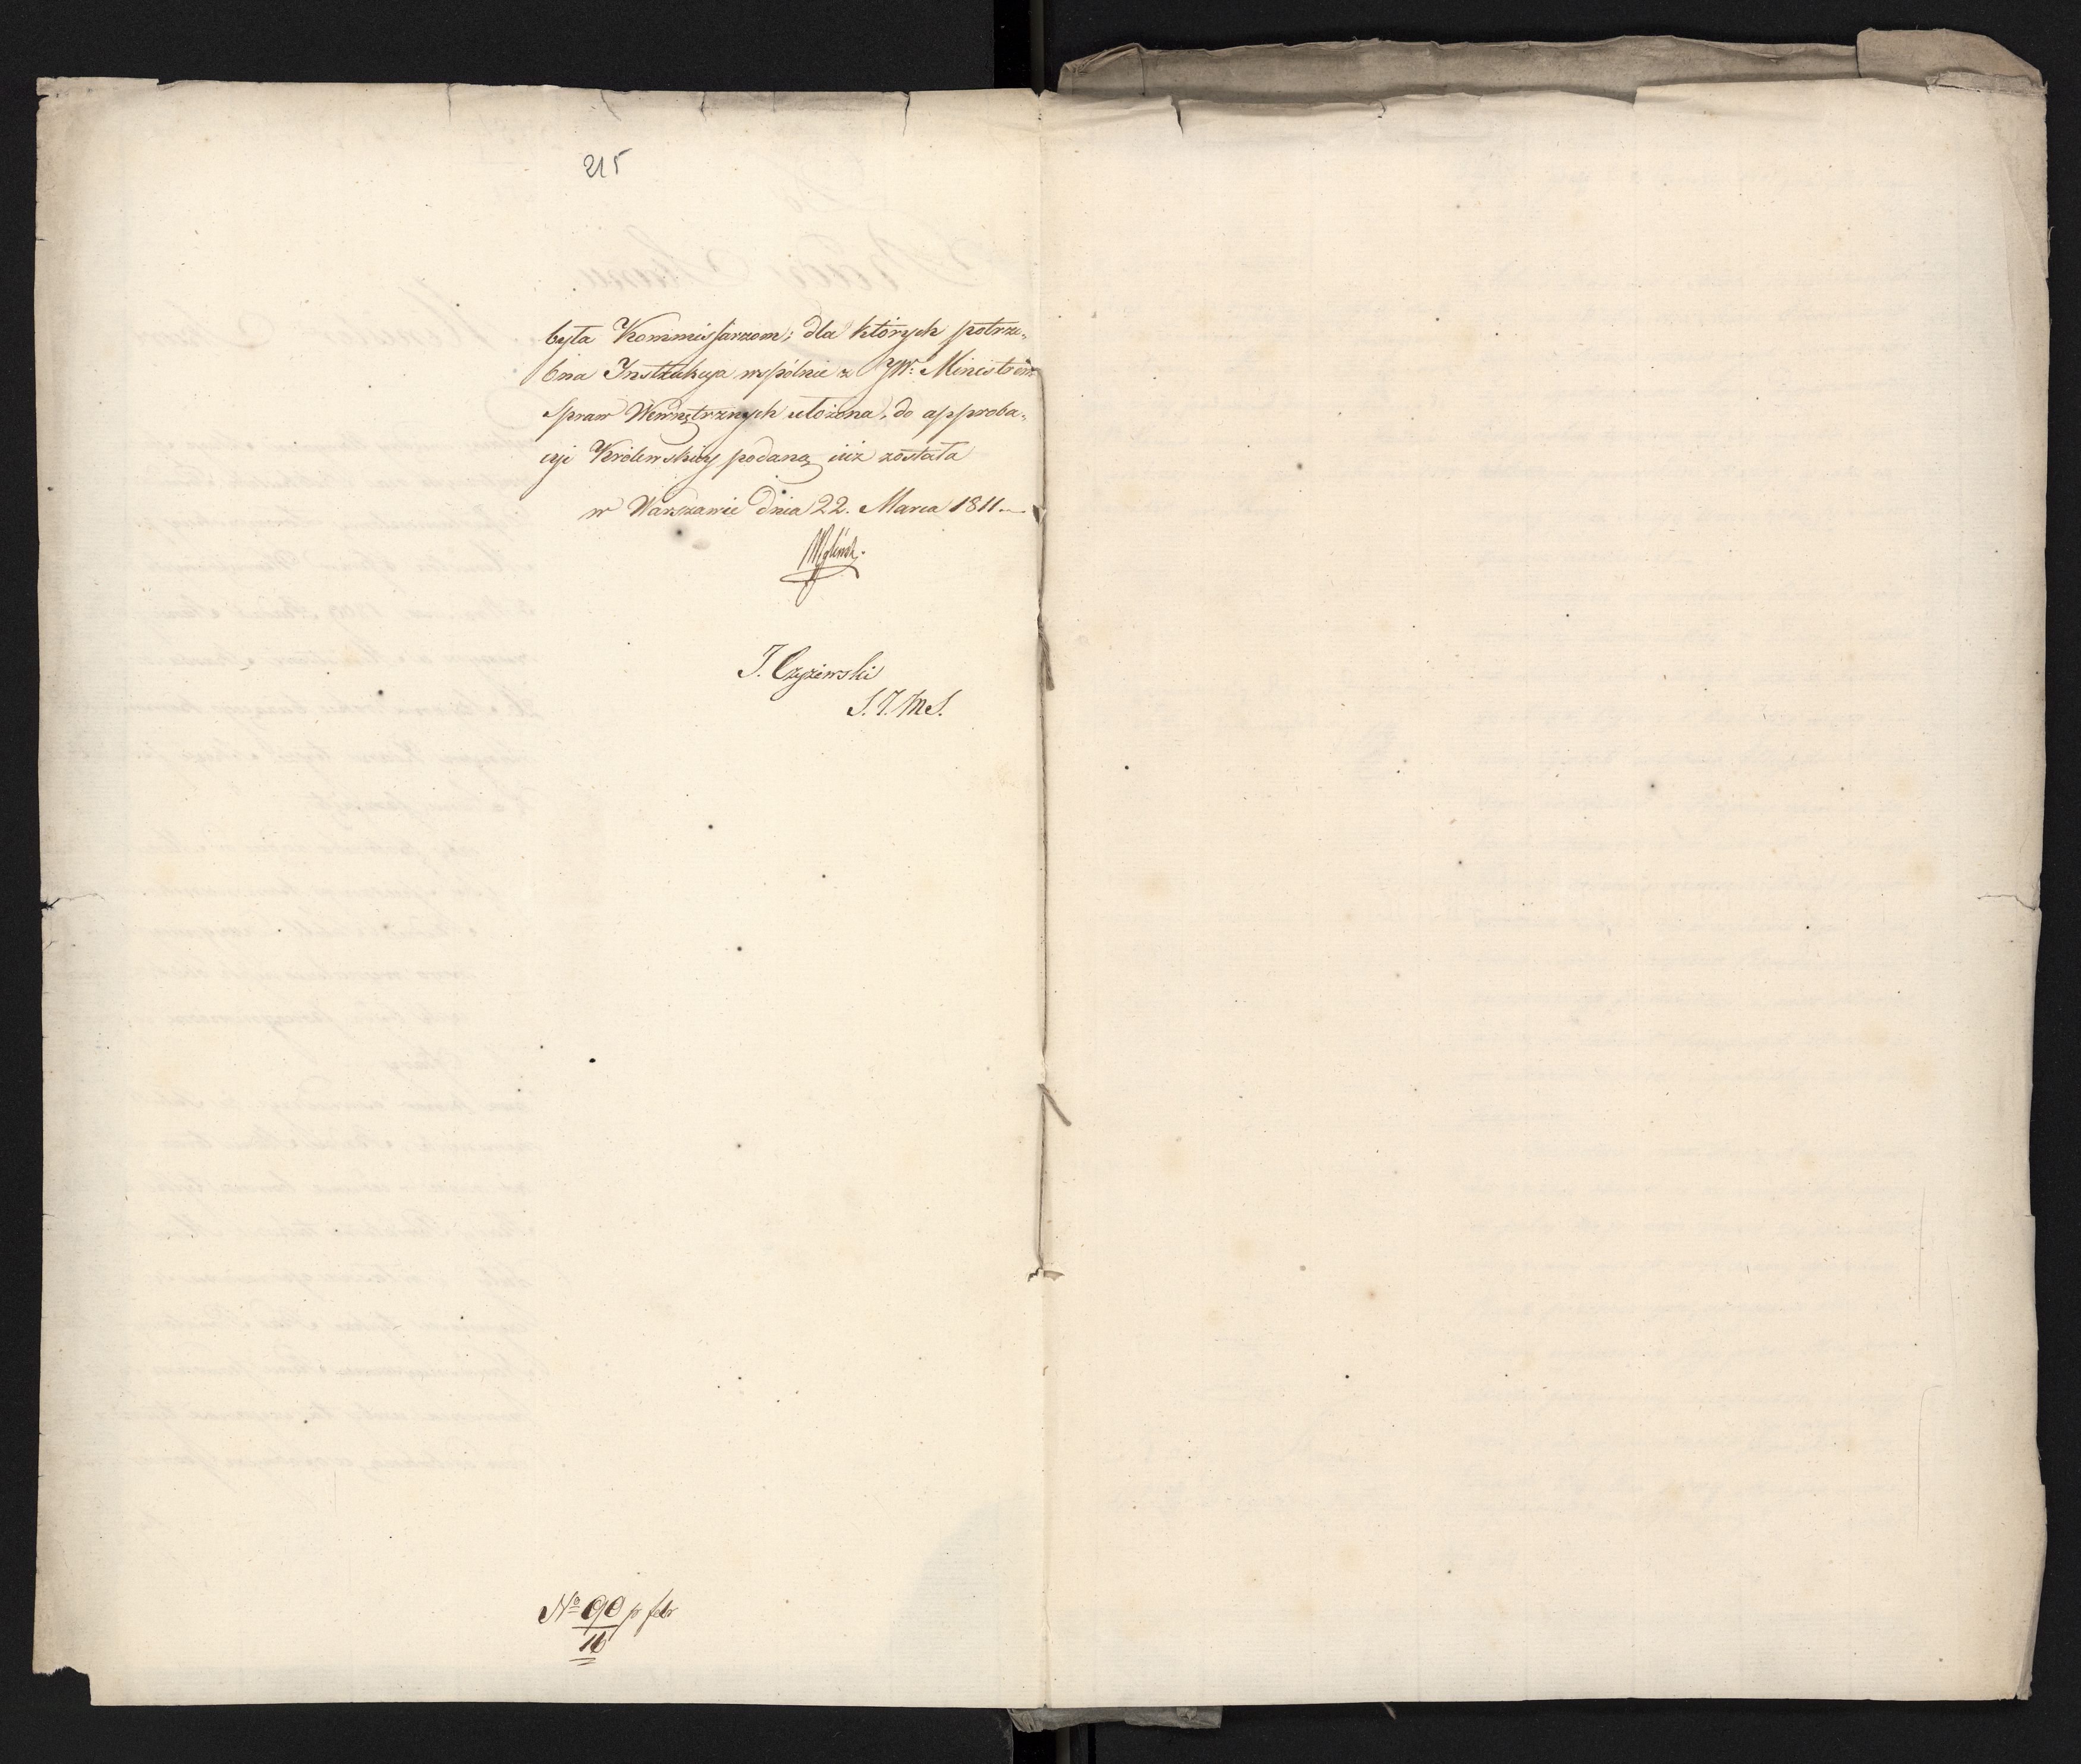 215
była Kommissarzom; dla których potrze„
bna Instrukcya wspólnie z JW: Ministrem
Spraw Wewnętrznych ułożona, do approba„
cyi Królewskiey podaną iuż została
w Warszawie dnia 22. Marca 1811.
J. Czyżewski
S. J. M S.
No 90 pr febr
16